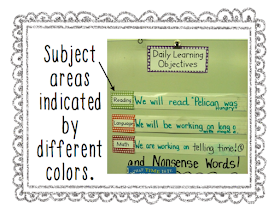 Subject
areas
indicated
by
different
colors.
Daily Learning
Objectives
Reading
We will read "Pelican was
Hungry."
Language
We will be working on long o
Math
We are working on telling time!☺
and Nonsense Words!